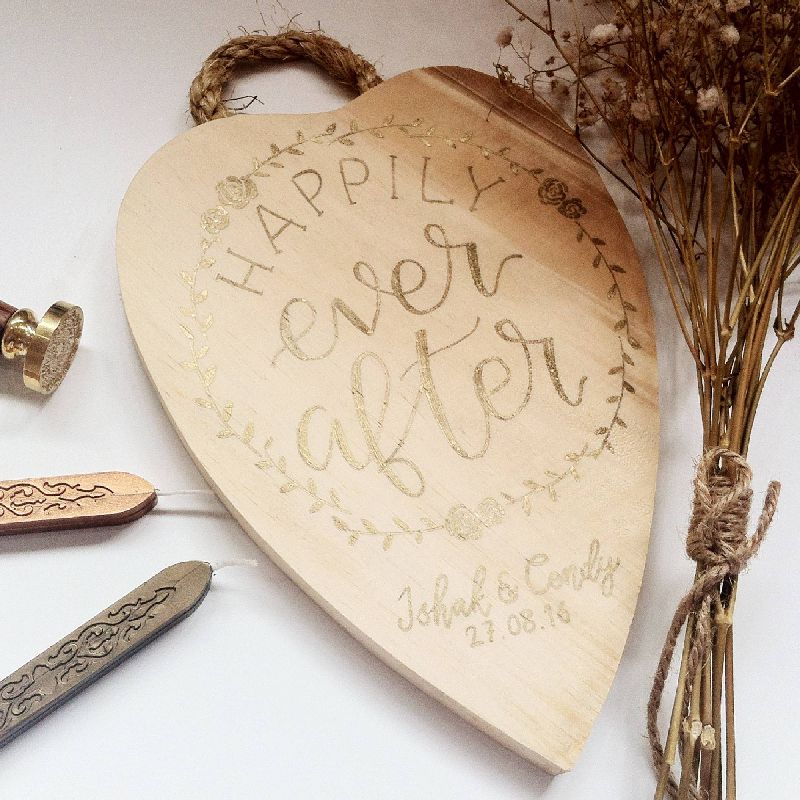 HAPPILY
ever
after
Ishak & Cendy
27.08.16